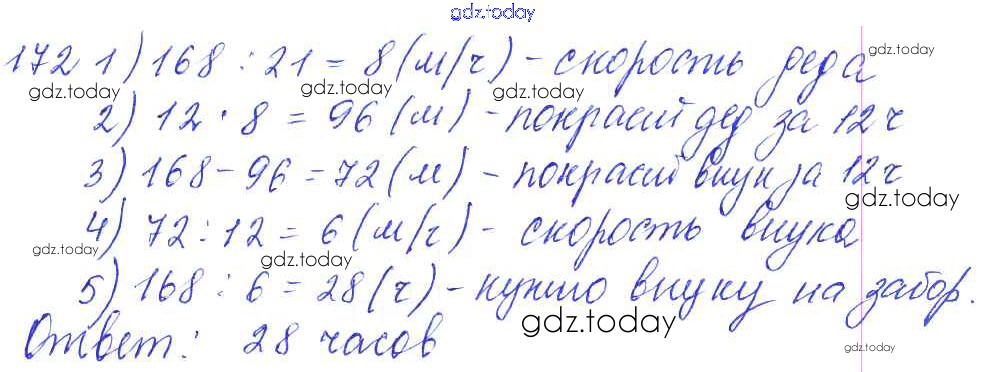 gdz.today
172 1) 168 : 21 = 8 (м/ч) - скорость деда
gdz.today gdz.today gdz.today gdz.today
2) 12 · 8 = 96 (м) - покрасил дед за 12 ч
3) 168 - 96 = 72 (м) - покрасил внук за 12 ч
gdz.today
4) 72 : 12 = 6 (м/ч) - скорость внука
gdz.today gdz.today
5) 168 : 6 = 28 (ч) - нужно внуку на забор.
gdz.today
Ответ: 28 часов
gdz.today